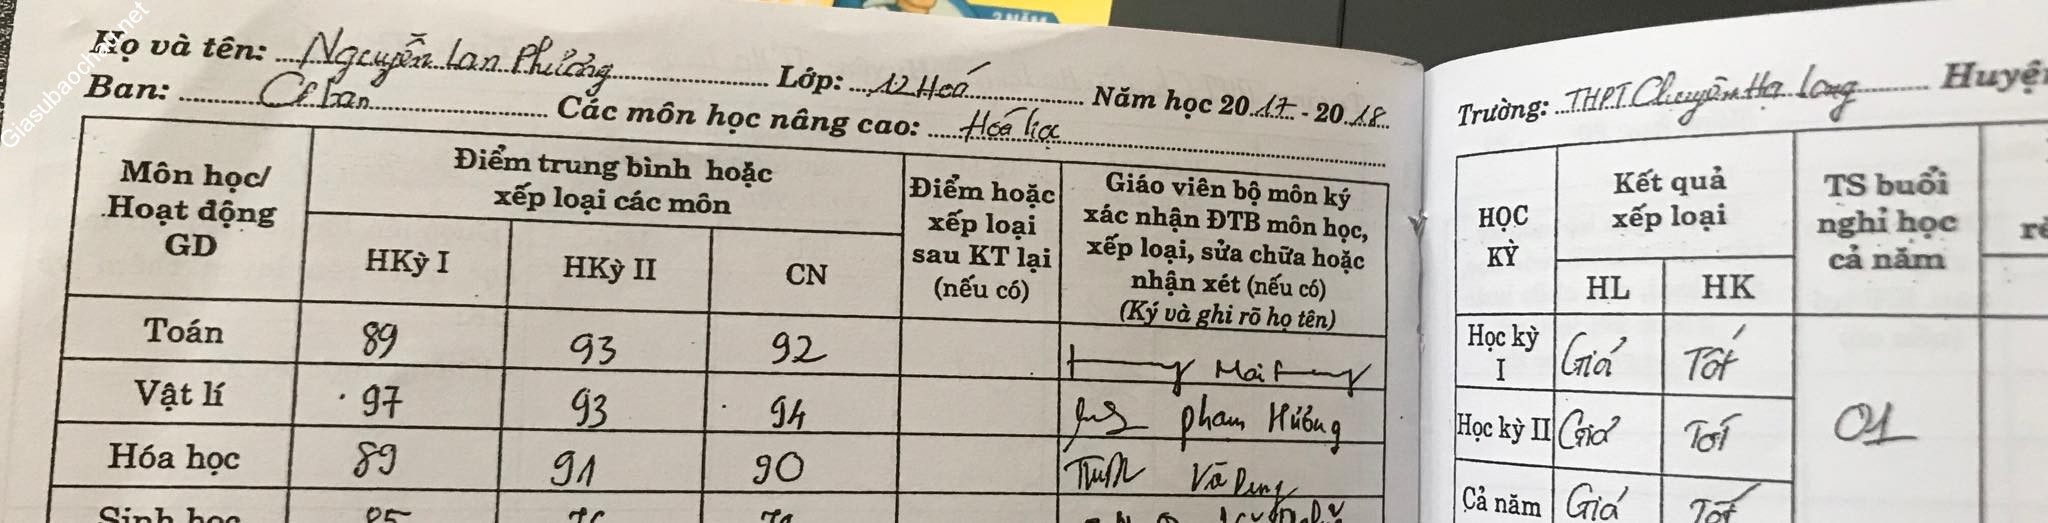 2 NĂM
Giasubaochau.net
Họ và tên: Nguyễn Lan Phương Lớp: 12 Hoá Năm học 2017 - 2018
Ban: CƠ bản Các môn học nâng cao: Hoá học
Môn học/ Hoạt động GD
Điểm trung bình hoặc xếp loại các môn
HKỳ I HKỳ II CN
Điểm hoặc xếp loại sau KT lại (nếu có)
Giáo viên bộ môn ký xác nhận ĐTB môn học, xếp loại, sửa chữa hoặc nhận xét (nếu có) (Ký và ghi rõ họ tên)
Toán 89 93 92
Vật lí 97 93 94 Phạm Hường
Hóa học 89 91 90
Sinh học 85
Trường: THPT Chuyên Hạ Long Huyện
HỌC KỲ
Kết quả xếp loại
HL HK
TS buổi nghỉ học cả năm
Học kỳ I Giỏi Tốt
Học kỳ II Giỏi Tốt 01
Cả năm Giỏi Tốt